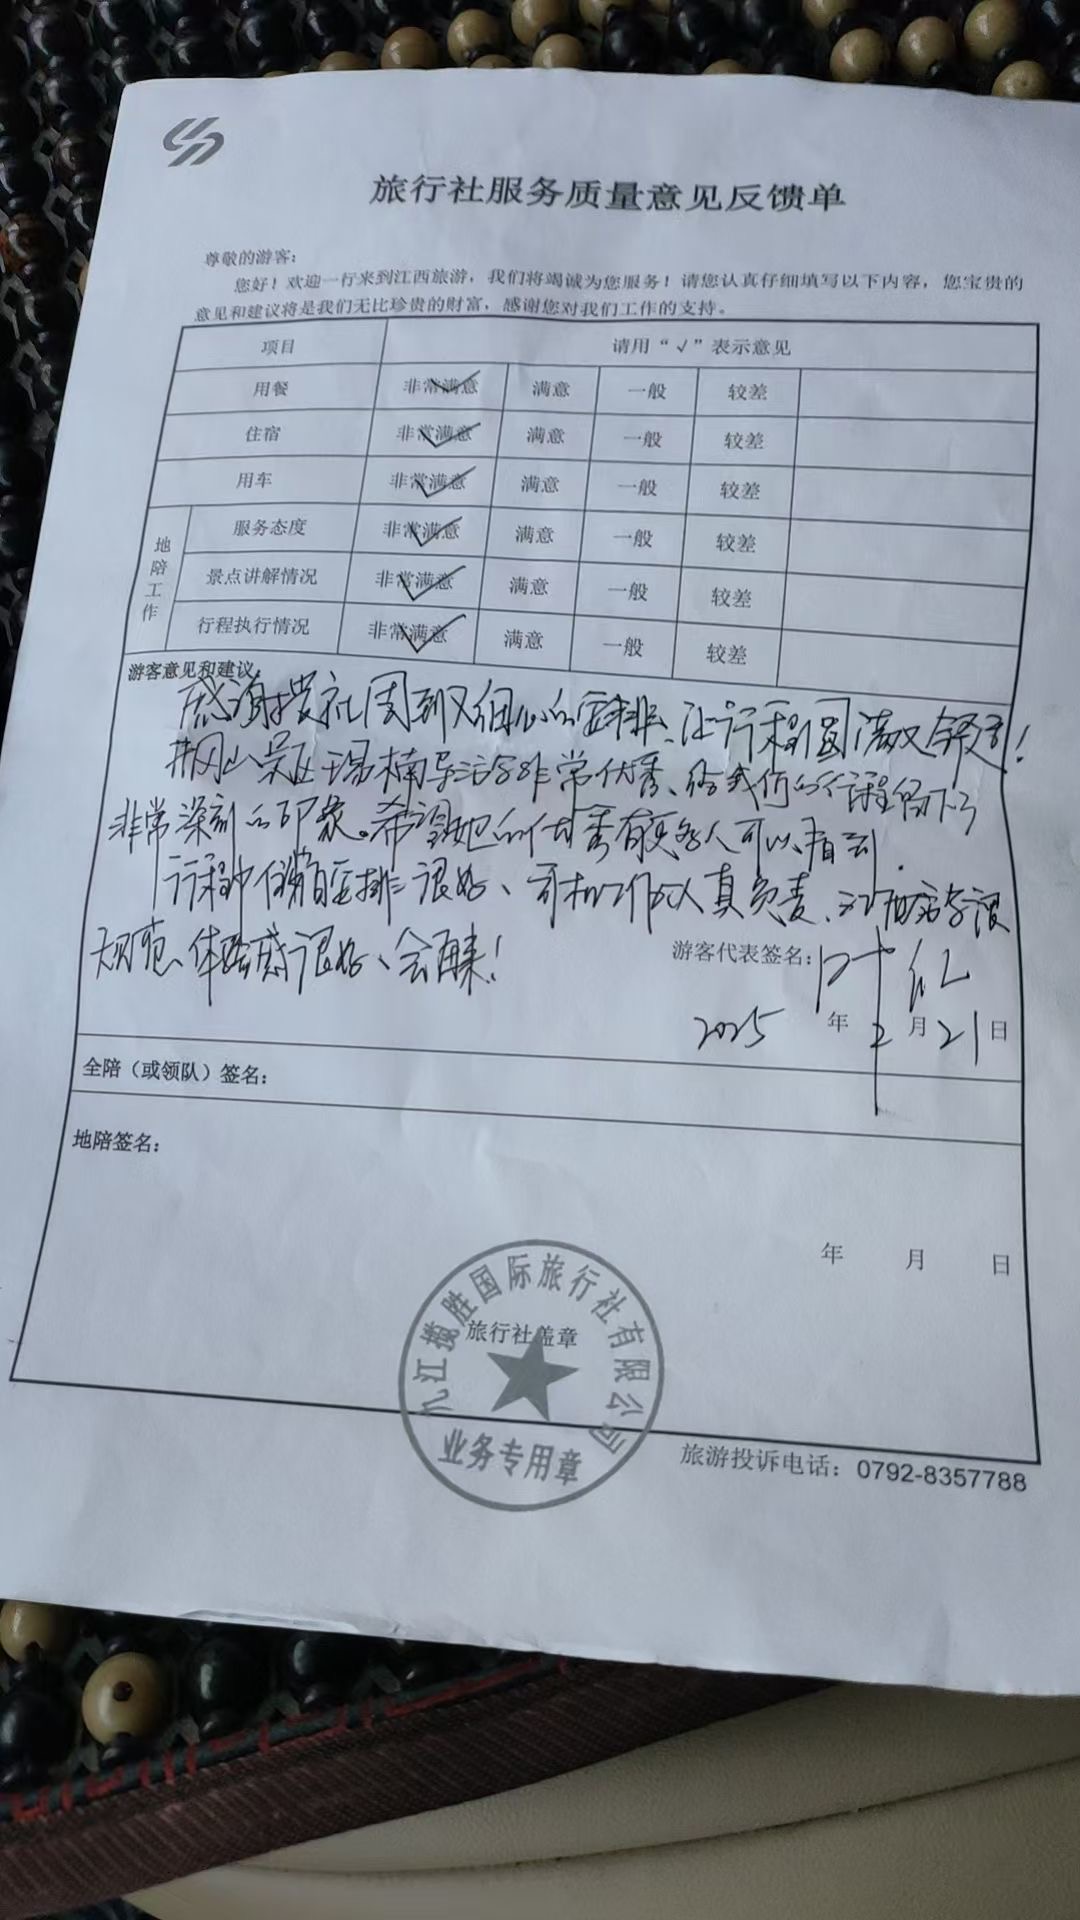 旅行社服务质量意见反馈单
尊敬的游客：
您好！欢迎一行来到江西旅游，我们将竭诚为您服务！请您认真仔细填写以下内容，您宝贵的
意见和建议将是我们无比珍贵的财富，感谢您对我们工作的支持。
项目 请用“√”表示意见
用餐 非常满意 满意 一般 较差
住宿 非常满意 满意 一般 较差
用车 非常满意 满意 一般 较差
地陪工作
服务态度 非常满意 满意 一般 较差
景点讲解情况 非常满意 满意 一般 较差
行程执行情况 非常满意 满意 一般 较差
游客意见和建议：
感谢 社周到又细心的安排、让行程圆满又 ！
井冈山 楠导 非常优秀、给我们的行程留下了
非常深刻的印象。希望她的优秀有更多人可以看到.
行程中 安排很好、司机工作认真负责、 很
规范、体验感很好、会再来！
游客代表签名：叶红
2025年2月21日
全陪（或领队）签名：
地陪签名：
年 月 日
旅行社盖章
九江揽胜国际旅行社有限公司
业务专用章
旅游投诉电话：0792-8357788